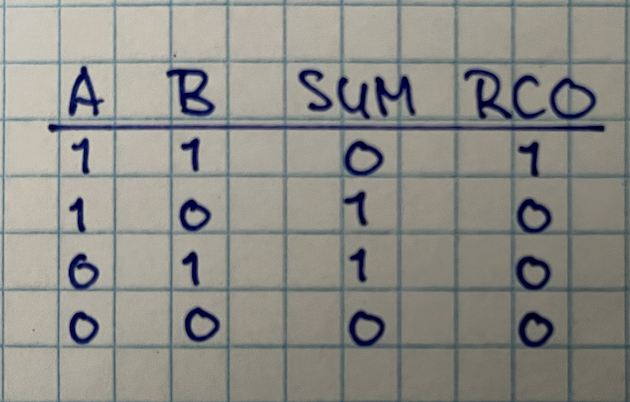 A B SUM RCO
1 1 0 1
1 0 1 0
0 1 1 0
0 0 0 0